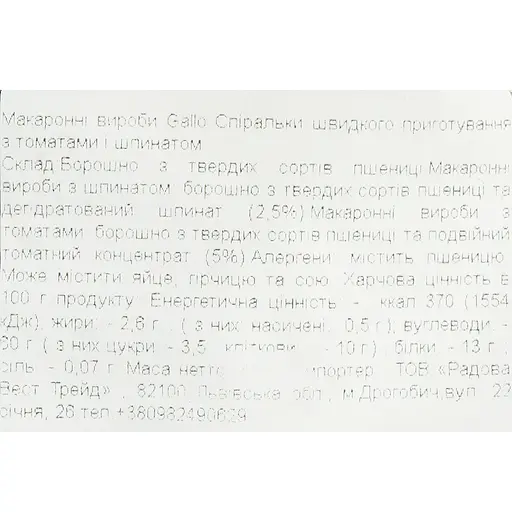 Макаронні вироби Gallo Спіральки швидкого приготування
з томатами і шпинатом
Склад Борошно з твердих сортів пшениці Макаронні
вироби з шпинатом борошно з твердих сортів пшениці та
дегідратований шпинат (2,5%) Макаронні вироби з
томатами борошно з твердих сортів пшениці та подвійний
томатний концентрат (5%) Алергени містить пшеницю
Може містити яйце, гірчицю та сою Харчова цінність в
100 г продукту Енергетична цінність - ккал 370 (1554
кДж), жири - 2,6 г , ( з них насичені 0,5 г), вуглеводи -
( з них цукри - 3,5 - 10 г) білки - 13 г ,
сіль - 0,07 г Маса нетто ТОВ «Радова
Вест Трейд» , 82100 Львівська обл , м Дрогобич, вул 22
січня, 26 тел +380982490629